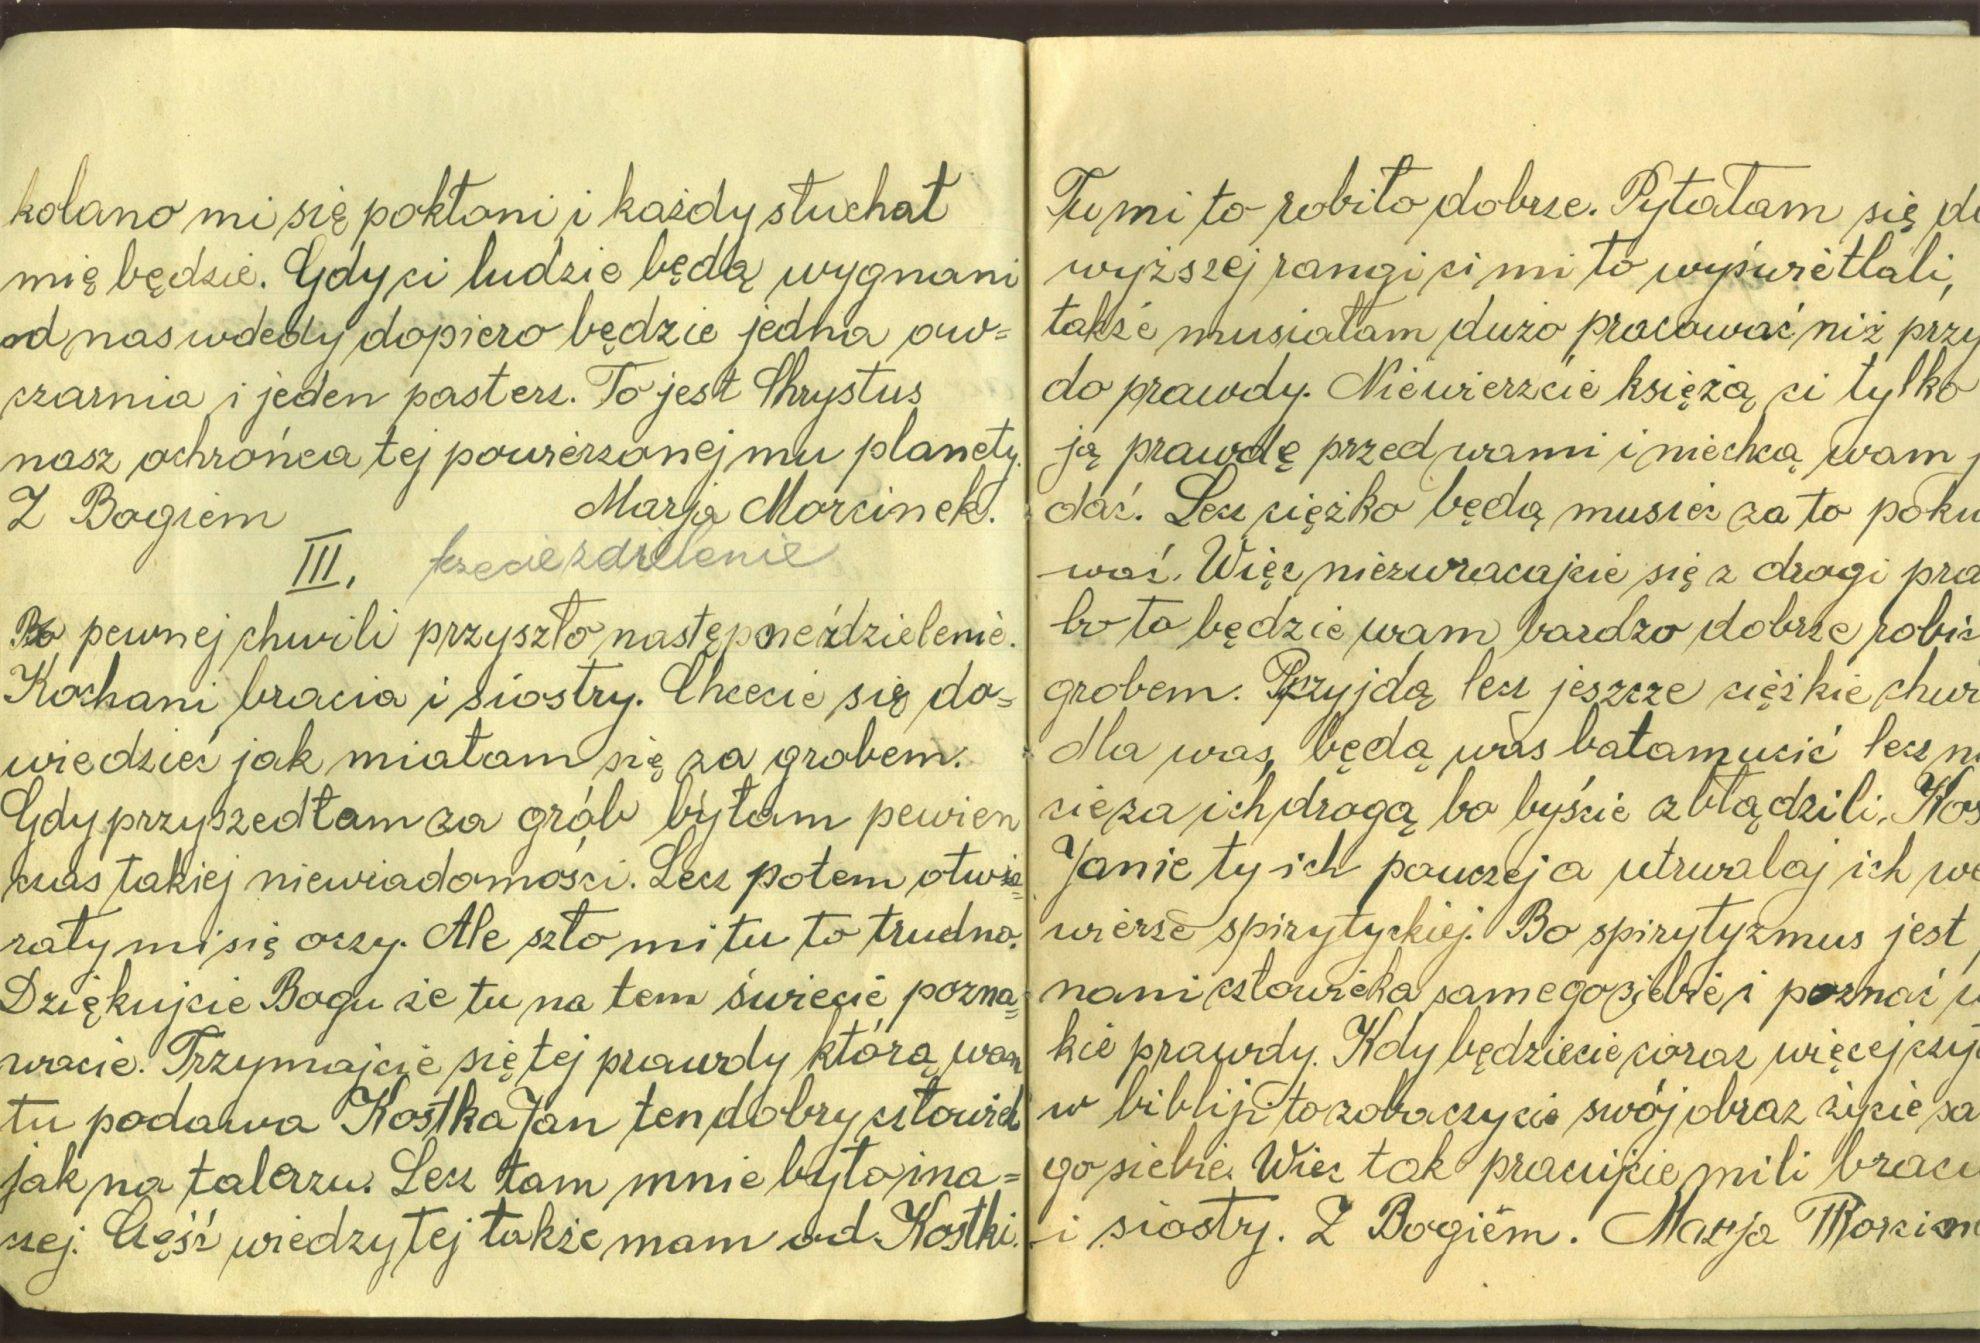 kolano mi się pokłoni i każdy słuchał
mię będzie. Gdy ci ludzie będą wygnani
od nas wdedy dopiero będzie jedna ow=
czarnia i jeden pasterz. To jest Chrystus
nasz ochrońca tej powierzonej mu planety.
Z Bogiem Marja Morcinek.
III. trzecie zdzielenie
Po pewnej chwili przyszło następne ździelenie.
Kochani bracia i siostry. Chcecie się do=
wiedzieć jak miałam się za grobem.
Gdy przyszedłam za grób byłam pewien
czas takiej niewiadomości. Lecz potem otwie=
rały mi się oczy. Ale szło mi tu to trudno.
Dziękujcie Bogu że tu na tem świecie pozna=
wacie. Trzymajcie się tej prawdy którą wam
tu podawa Kostka Jan ten dobry człowiek
jak na talerzu. Lecz tam mnie było ina=
czej. Część wiedzy tej także mam od Kostki.
Tu mi to robiło dobrze. Pytałam się du
wyższej rangi ci mi to wyświetlali,
także musiałam dużo pracować niż przy
do prawdy. Niewierzcie księżą ci tylko
ją prawdę przed wami i niechcą wam
dać. Lecz ciężko będą musieć za to poku
wać. Więc niezwracajcie się z drogi pra
bo to będzie wam bardzo dobrze robić
grobem. Przyjdą lecz jeszcze ciężkie chwi
dla was, będą was bałamucić lecz ni
cie za ich drogą bo byście zbłądzili. Kos
Janie ty ich pouczej a utrwalaj ich we
wierze spirytyckiej. Bo spirytyzmus jest
nani człowieka samego siebie i poznać w
kie prawdy. Kdy będziecie coraz więcej czyt
w biblji to zobaczycie swój obraz życie sa
go siebie. Wiec tak pracujcie mili braci
i siostry. Z Bogiem. Marja Morcin